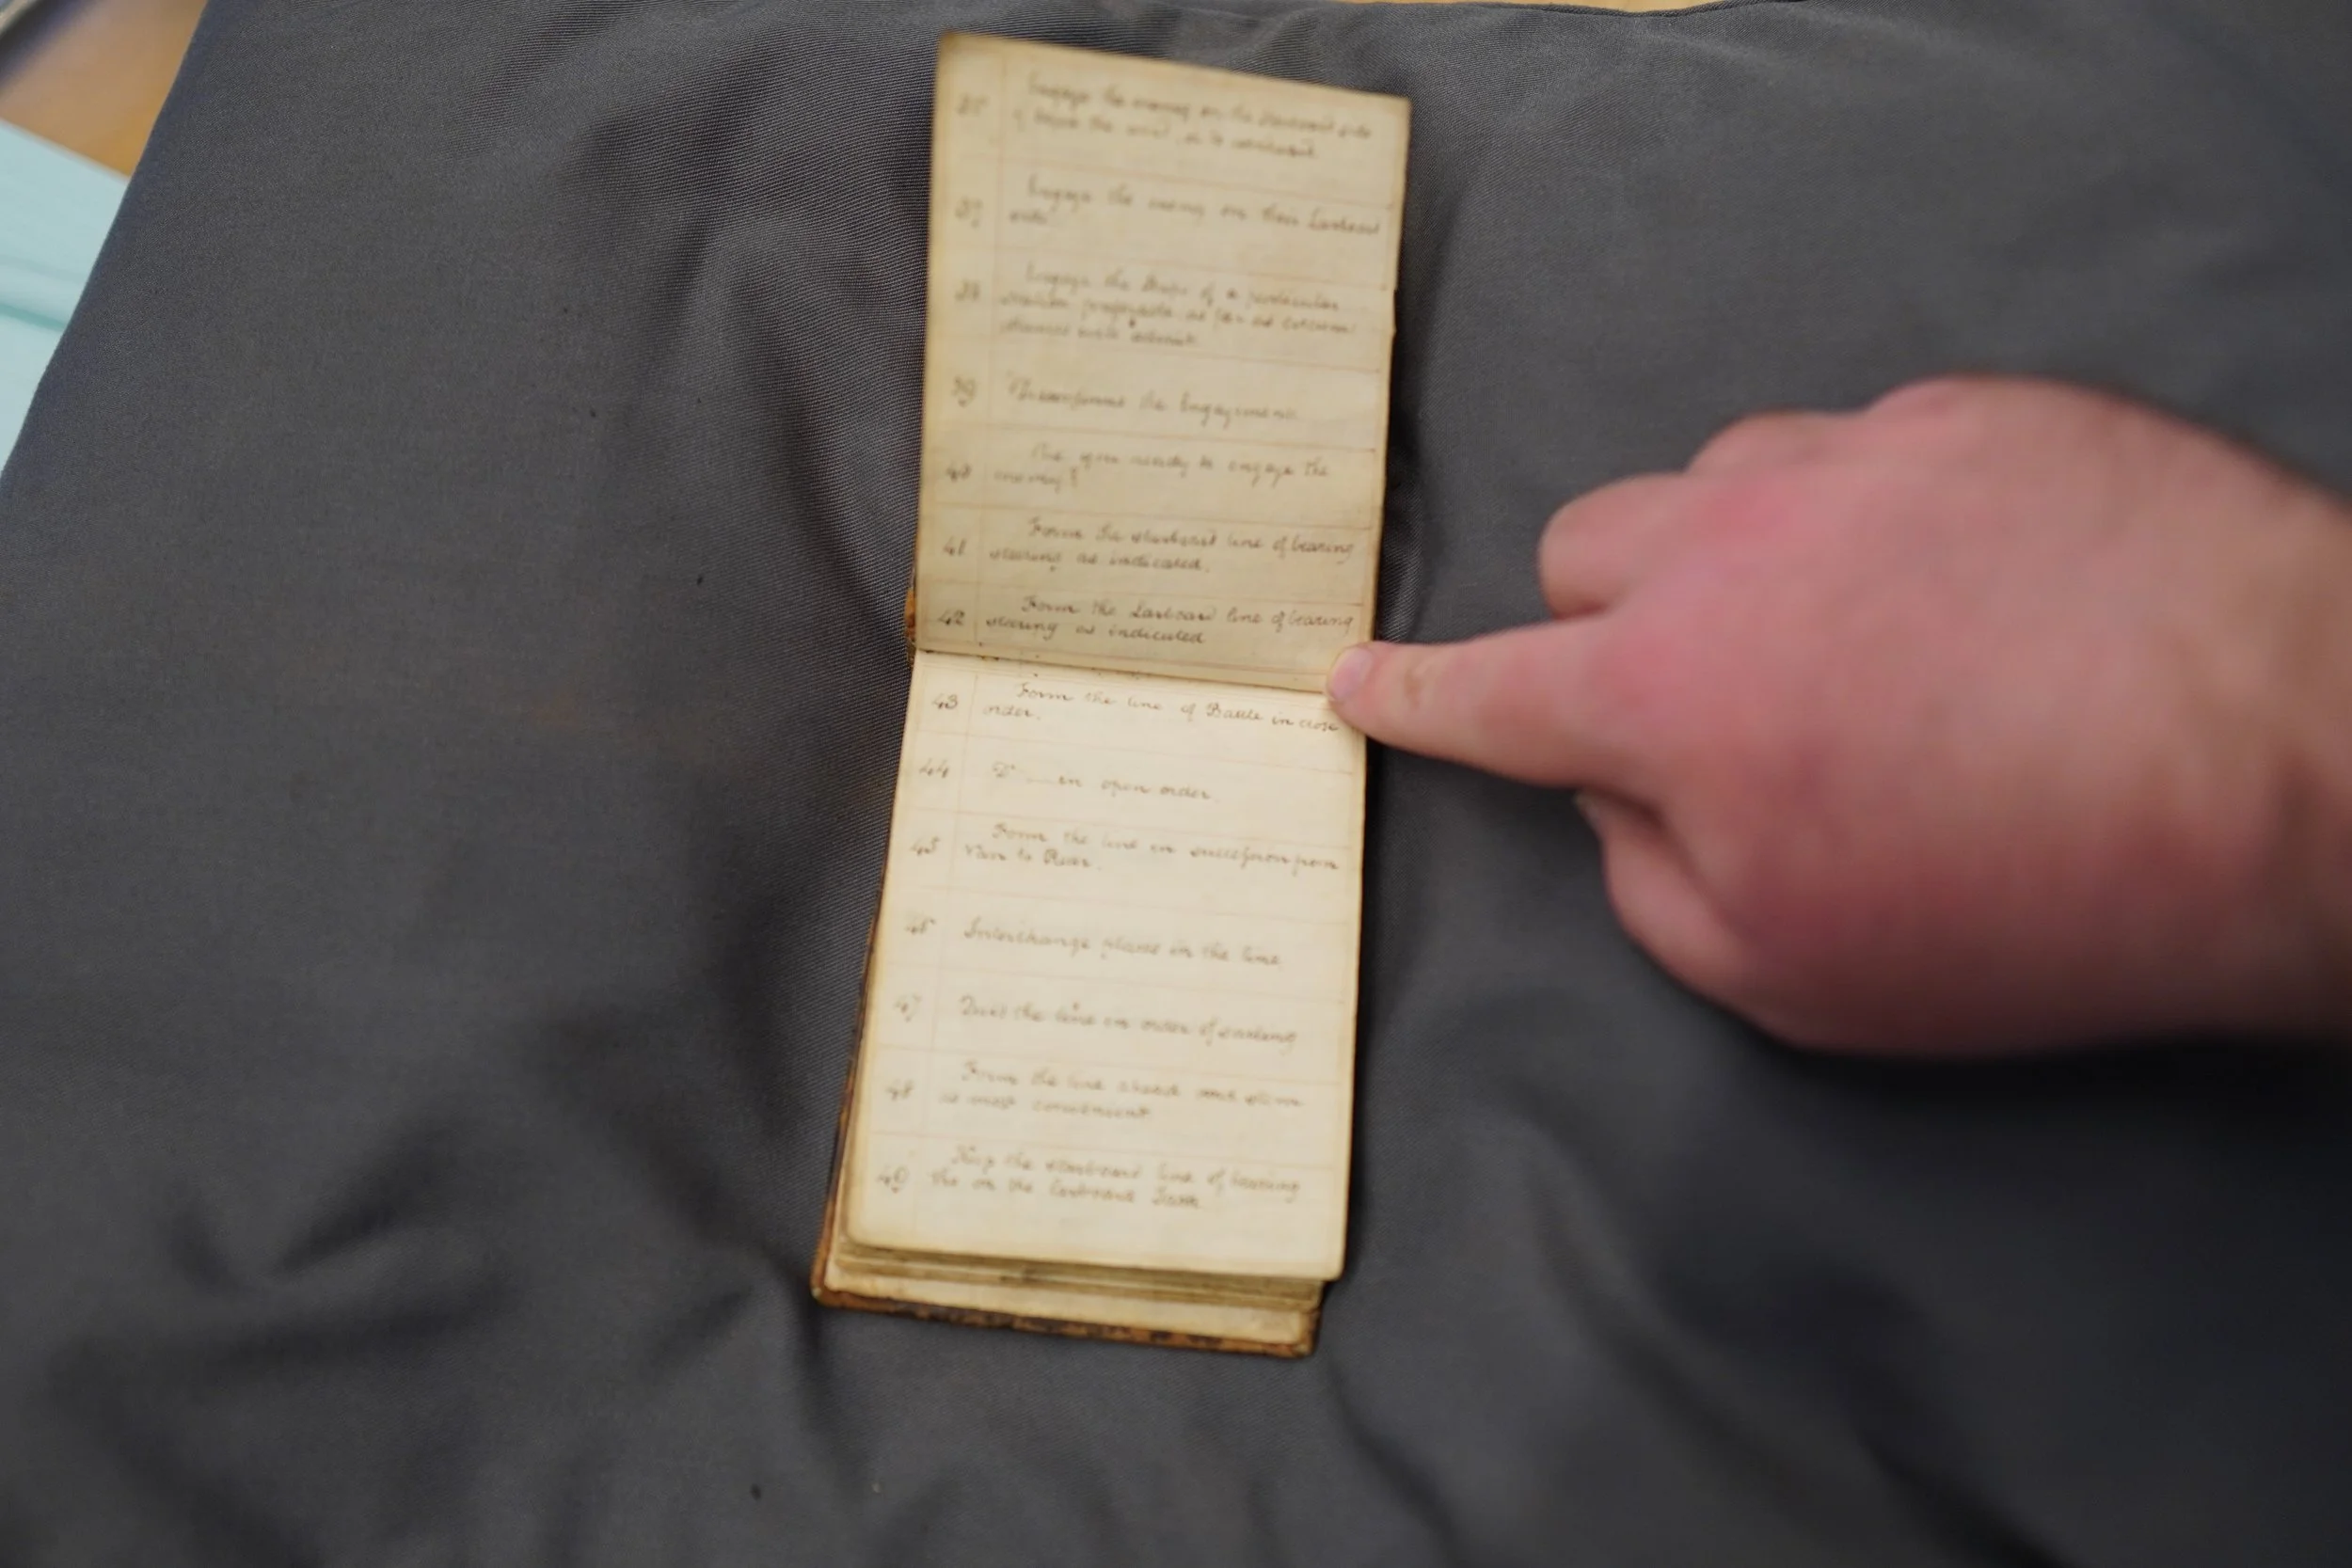 Engage the enemy on the Starboard side
if before the wind, or to windward.
37 Engage the enemy on their Larboard
side
38 Engage the Ships of a particular
as far as circum
stances will admit
39 the Engagement
40 Are you ready to engage the
enemy?
41 Form the starboard line of bearing
steering as indicated.
42 Form the Larboard line of bearing
steering as indicated
43 Form the line of Battle in close
order.
44 Do — in open order.
45 Form the line in succession from
Van to Rear.
46 Interchange places in the line
47 Quit the line in order of sailing
48 Form the line ahead and astern
as most convenient
49 Keep the starboard line of bearing
tho on the larboard Tack